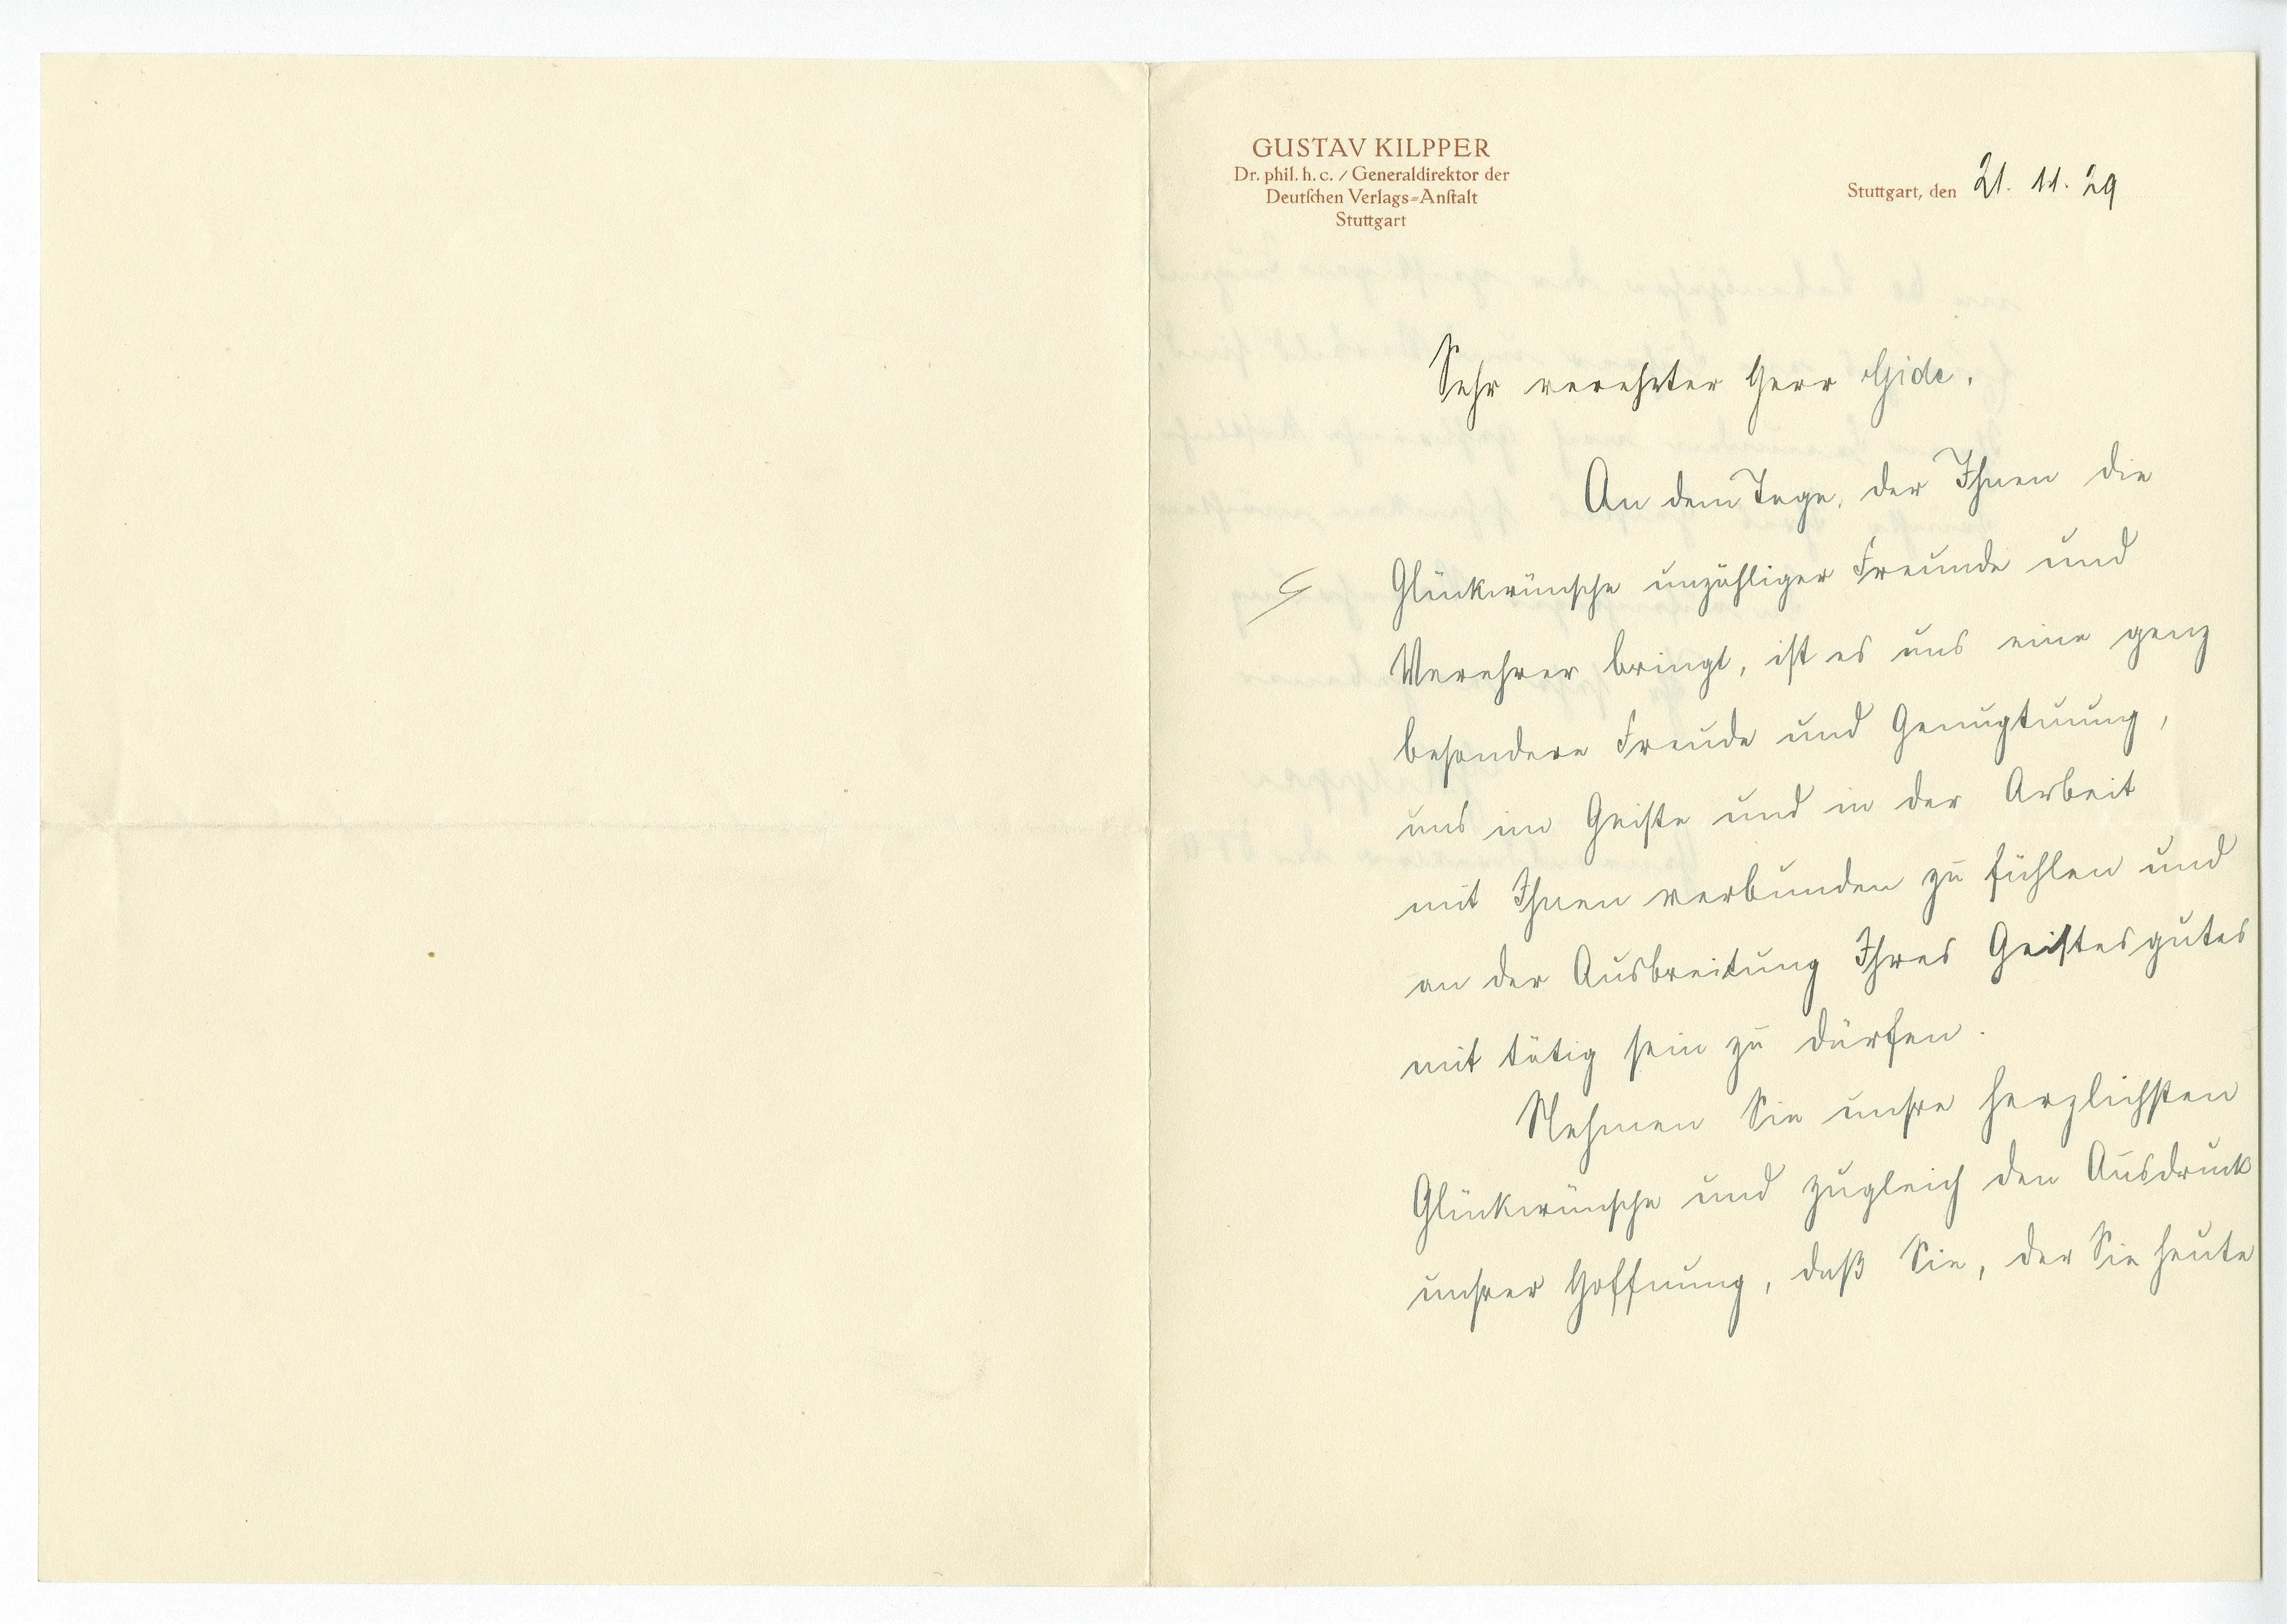 GUSTAV KILPPER
Dr. phil. h. c. / Generaldirektor der
Deutſchen Verlags-Anſtalt
Stuttgart
Stuttgart, den 21. 11. 29
Sehr verehrter Herr Gide.
An dem Tage, der Ihnen die
Glückwünsche unzähliger Freunde und
Verehrer bringt, ist es uns eine ganz
besondere Freude und Genugtuung,
uns im Geiste und in der Arbeit
mit Ihnen verbunden zu fühlen und
an der Ausbreitung Ihres Geistesgutes
mit tätig sein zu dürfen.
Nehmen Sie unsre herzlichsten
Glückwünsche und zugleich den Ausdruck
unsrer Hoffnung, daß Sie, der Sie heute